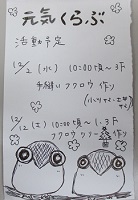 元気くらぶ
活動予定
12/2 (水) 10:00頃～3F
手縫いフクロウ作り
12/12 (土) 10:00頃～1.3F
フクロウツリー作り